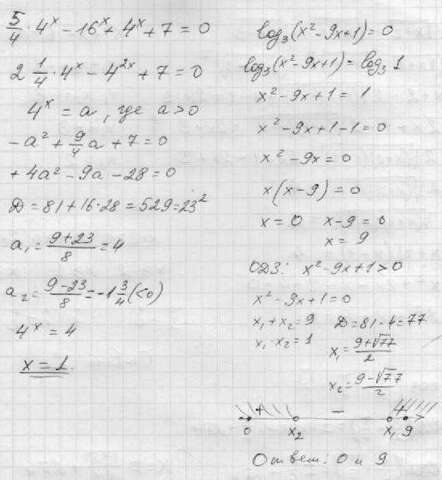 5/4 · 4^x − 16^x + 4^x + 7 = 0
2 1/4 · 4^x − 4^{2x} + 7 = 0
4^x = a, где a > 0
−a² + 9/4 a + 7 = 0
+4a² − 9a − 28 = 0
D = 81 + 16·28 = 529 = 23²
a₁ = (9+23)/8 = 4
a₂ = (9−23)/8 = −1 3/4 (<0)
4^x = 4
x = 1.
log₃(x² − 9x + 1) = 0
log₃(x² − 9x + 1) = log₃ 1
x² − 9x + 1 = 1
x² − 9x + 1 − 1 = 0
x² − 9x = 0
x(x − 9) = 0
x = 0 x − 9 = 0
x = 9
ОДЗ: x² − 9x + 1 > 0
x² − 9x + 1 = 0
x₁ + x₂ = 9 D = 81 − 4 = 77
x₁ · x₂ = 1 x₁ = (9+√77)/2
x₂ = (9−√77)/2
+ − +
0 x₂ x₁ 9
Ответ: 0 и 9